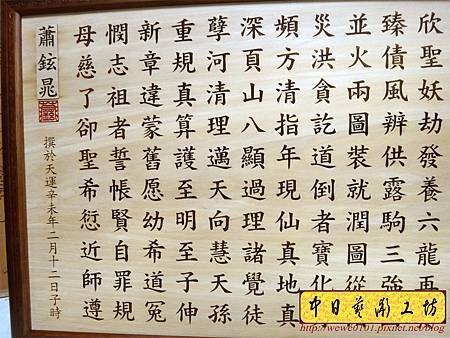 欣聖妖劫發養六龍再
臻債風辨供露駒三強
並火兩圖裝就潤圖從
災洪貪訖道倒者寶化
頻方清指年現仙真地真
深頁山八顯過理諸覺徒
孽河清理邁天向慧天孫
重規真算護至明至子伸
新章違蒙舊愿幼希道冤
憫志祖者誓帳賢自罪規
母慈了卻聖希愆近師遵
蕭鉉晁
撰於天運辛未年二月十二日子時
中日藝術工坊
http://wewe0101.pixnet.net/blog